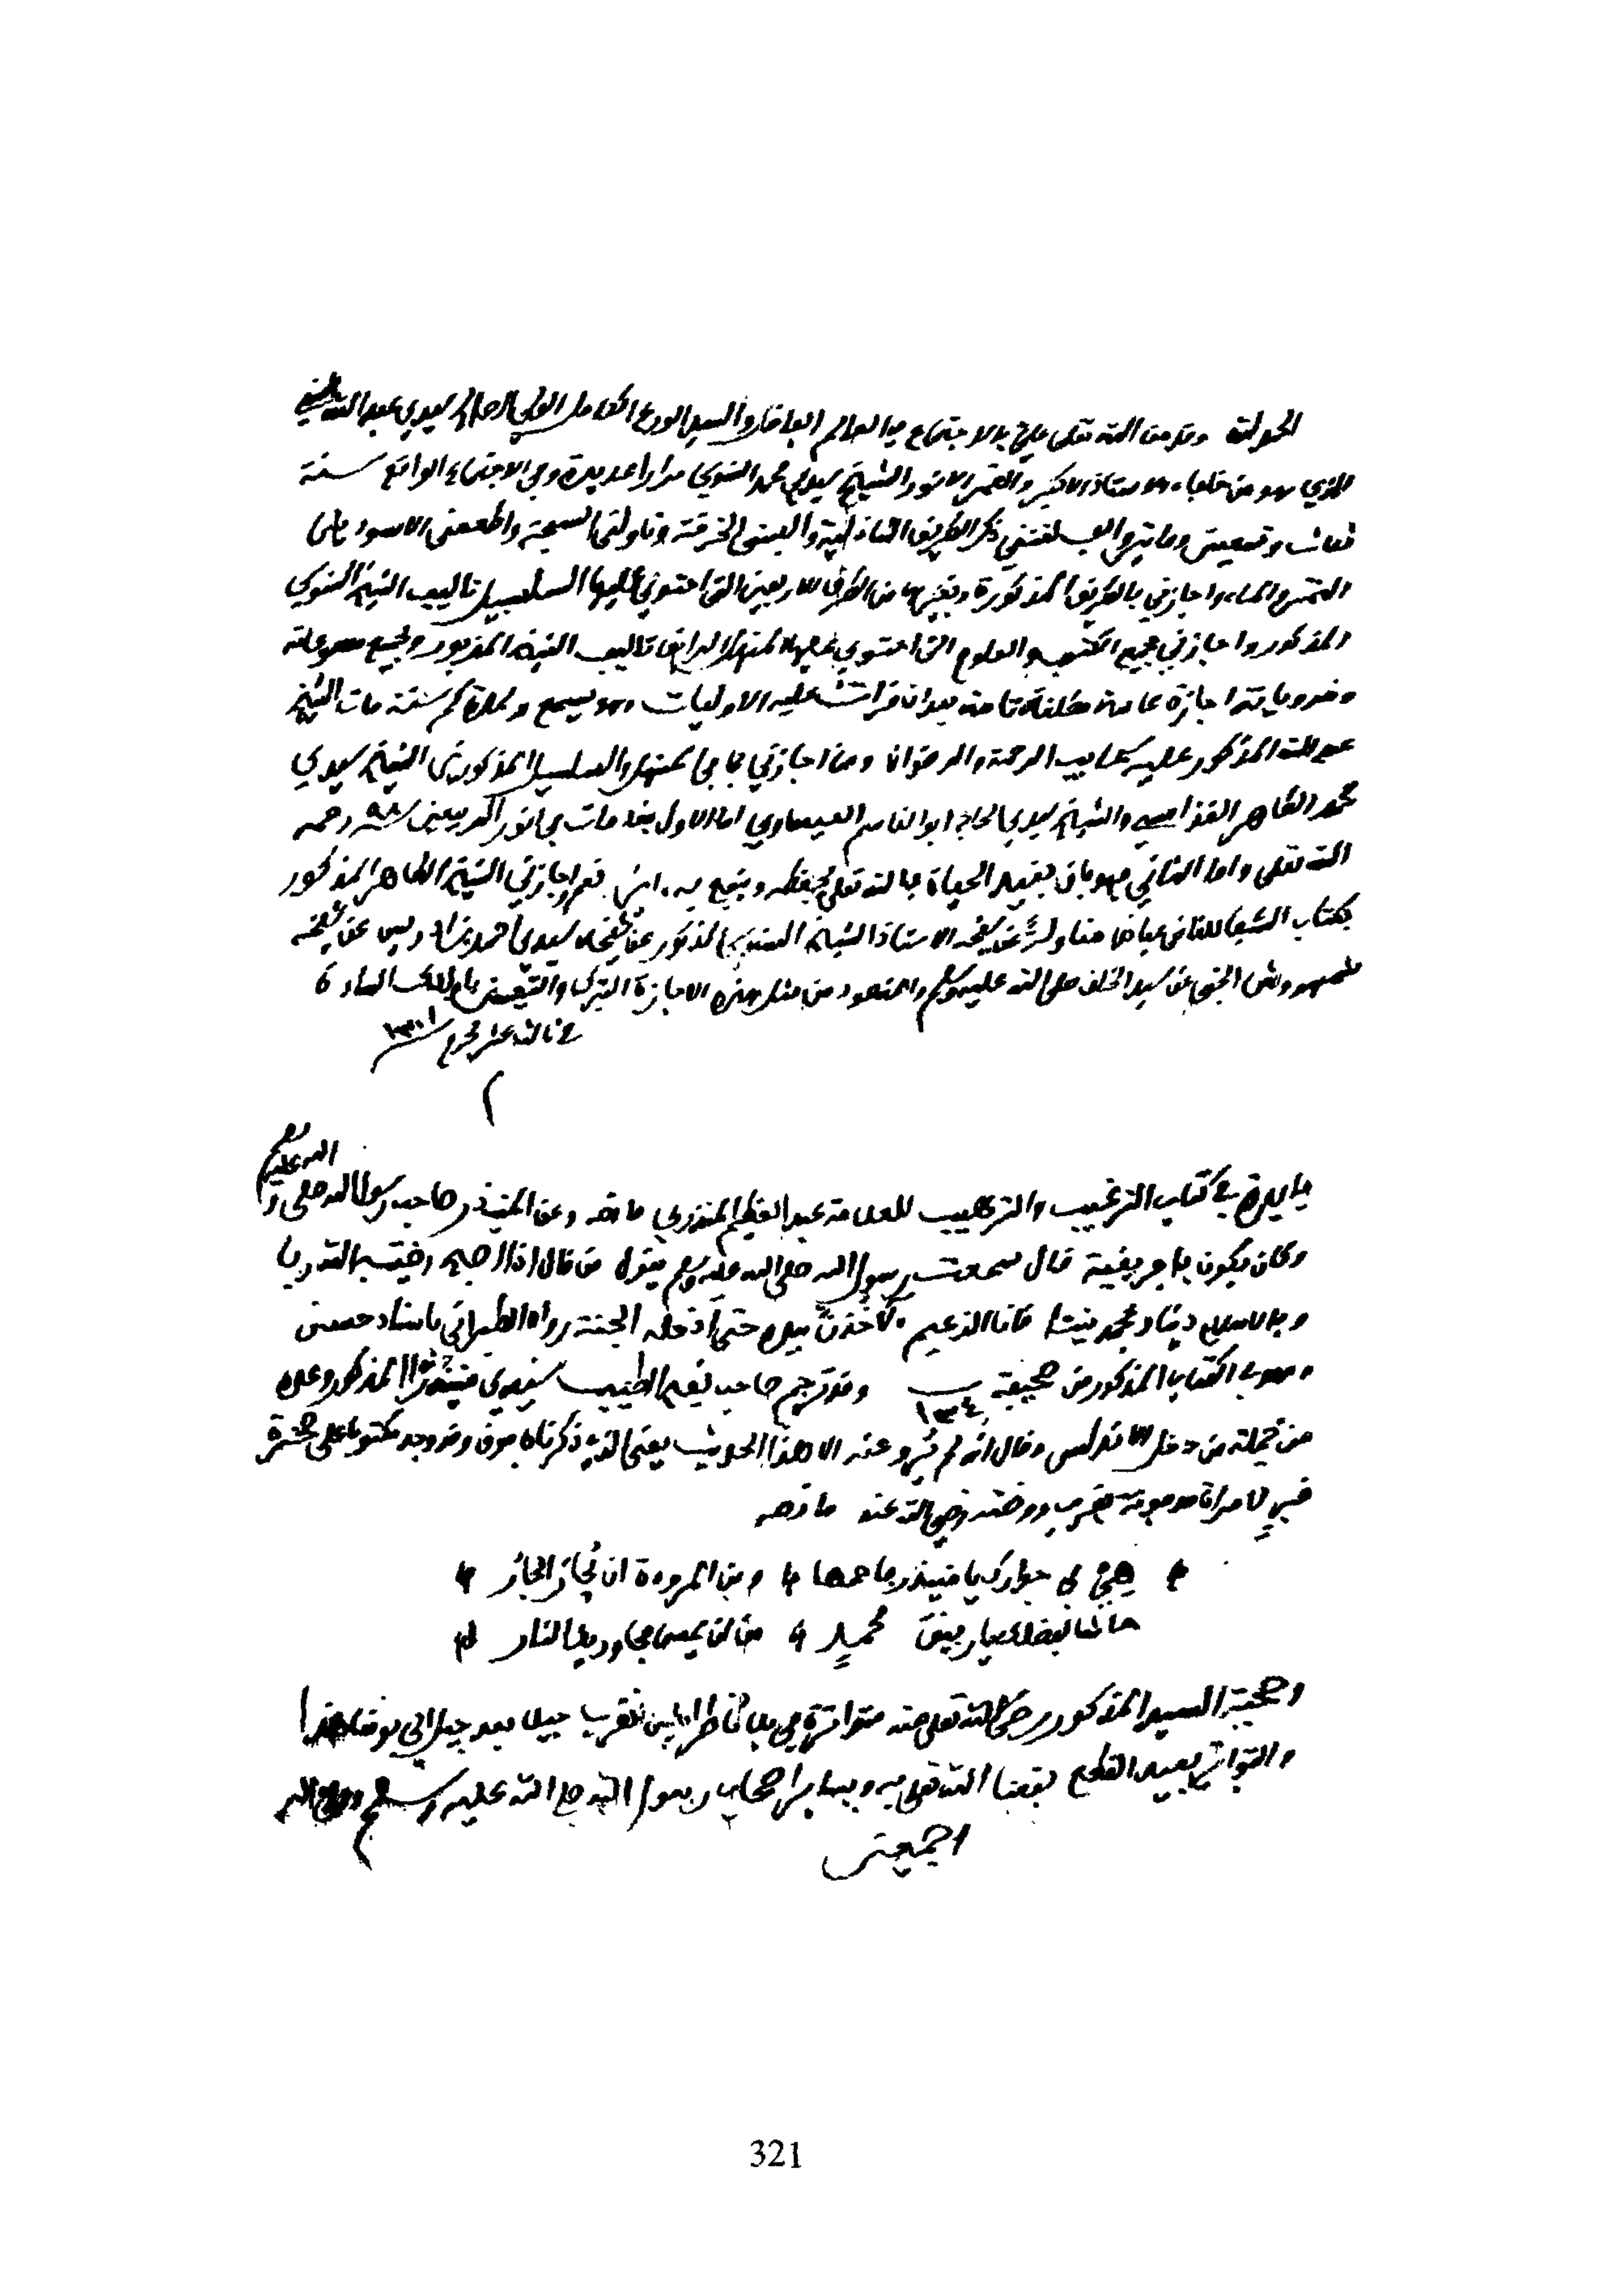 الحمد لله وقد من الله تعلى علي بالاجتماع بالعالم الفاضل والسيد الورع الكامل الولي الصالح سيدي عبد الله السني
الذي هو من خلفاء الاستاذ الاكبر والقمر الانور الشيخ سيدي محمد السنوسي مرارا عديدة وفي الاجتماع الواقع سنة
ثلاث وتسعين ومايتين والف لقنني ذكر الطريق الشاذلية والبسني الخرقة وناولني السبحة واطعمني الاسودين
التمر والماء واجازني بالطريق المذكورة وبغيرها من الطرق الاربعين التي احتوى عليها السلسبيل تاليف الشيخ السنوسي
المذكور واجازني بجميع الكتب والعلوم التي احتوى عليها المنهل الرايق تاليف الشيخ المزبور وبجميع مسموعاته
ومروياته اجازة عامة مطلقة تامة بعد ان قرات عليه الاوليات وهو يسمع مات الشيخ
عبد الله المذكور عليه سحايب الرحمة والرضوان وممن اجازني بما في المنهل والسلسبيل المذكورين الشيخ سيدي
محمد الطاهر الغدامسي والشيخ سيدي الحاج ابو القاسم العيساوي اما الاول فقد مات في رحمه
الله تعلى واما الثاني فهو باق بقيد الحياة فالله تعلى يحفظه وينفع به امين نعم واجازني الشيخ الطاهر المذكور
بكتاب الشفا للقاضي عياض مناولة عن شيخه الاستاذ الشيخ السنوسي المذكور عن شيخه سيدي احمد بن ادريس عن شيخه
شمهروش الجني عن سيد الخلق صلى الله عليه وسلم والمقصود من مثل هذه الاجازة التبرك والتيمن باولائك السادة
في ثالث عشر محرم ١٣٠١
فايدة في كتاب الترغيب والترهيب للعلامة عبد العظيم المنذري ما نصه وعن المنيذر صاحب رسول الله صلى الله عليه وسلم
وكان يكون بافريقية قال سمعت رسول الله صلى الله عليه وسلم يقول من قال اذا اصبح رضيت بالله ربا
وبالاسلام دينا وبمحمد نبيئا فانا الزعيم لآخذن بيده حتى أدخله الجنة رواه الطبراني باسناد حسن
وهو في الكتاب المذكور من صحيفة ١٣٤ وقد ترجم صاحب نفح الطيب سيدي منيذرا المذكور وعده
من جملة من دخل الاندلس وقال انه لم يُرو عنه الا هذا الحديث يعني الذي ذكرناه فوق وقد وجد مكتوبا على صخرة
قبرٍ لامراة مدفونة بقرب روضته رضي الله عنه ما نصه
هي في جوارك يا منيذر فاحمها ومن المروءة ان يُجار الجار
حاشا لفضلك يا رفيق محمدٍ من ان يمس مجاوريك النار
وصحبة السيد المذكور رضي الله تعلى عنه متواترة في بلاد طرابلس الغرب جيلا بعد جيل الى يومنا هذا
والتواتر يفيد القطع نفعنا الله تعلى به وبساير اصحاب رسول الله صلى الله عليه وسلم
اجمعين
321